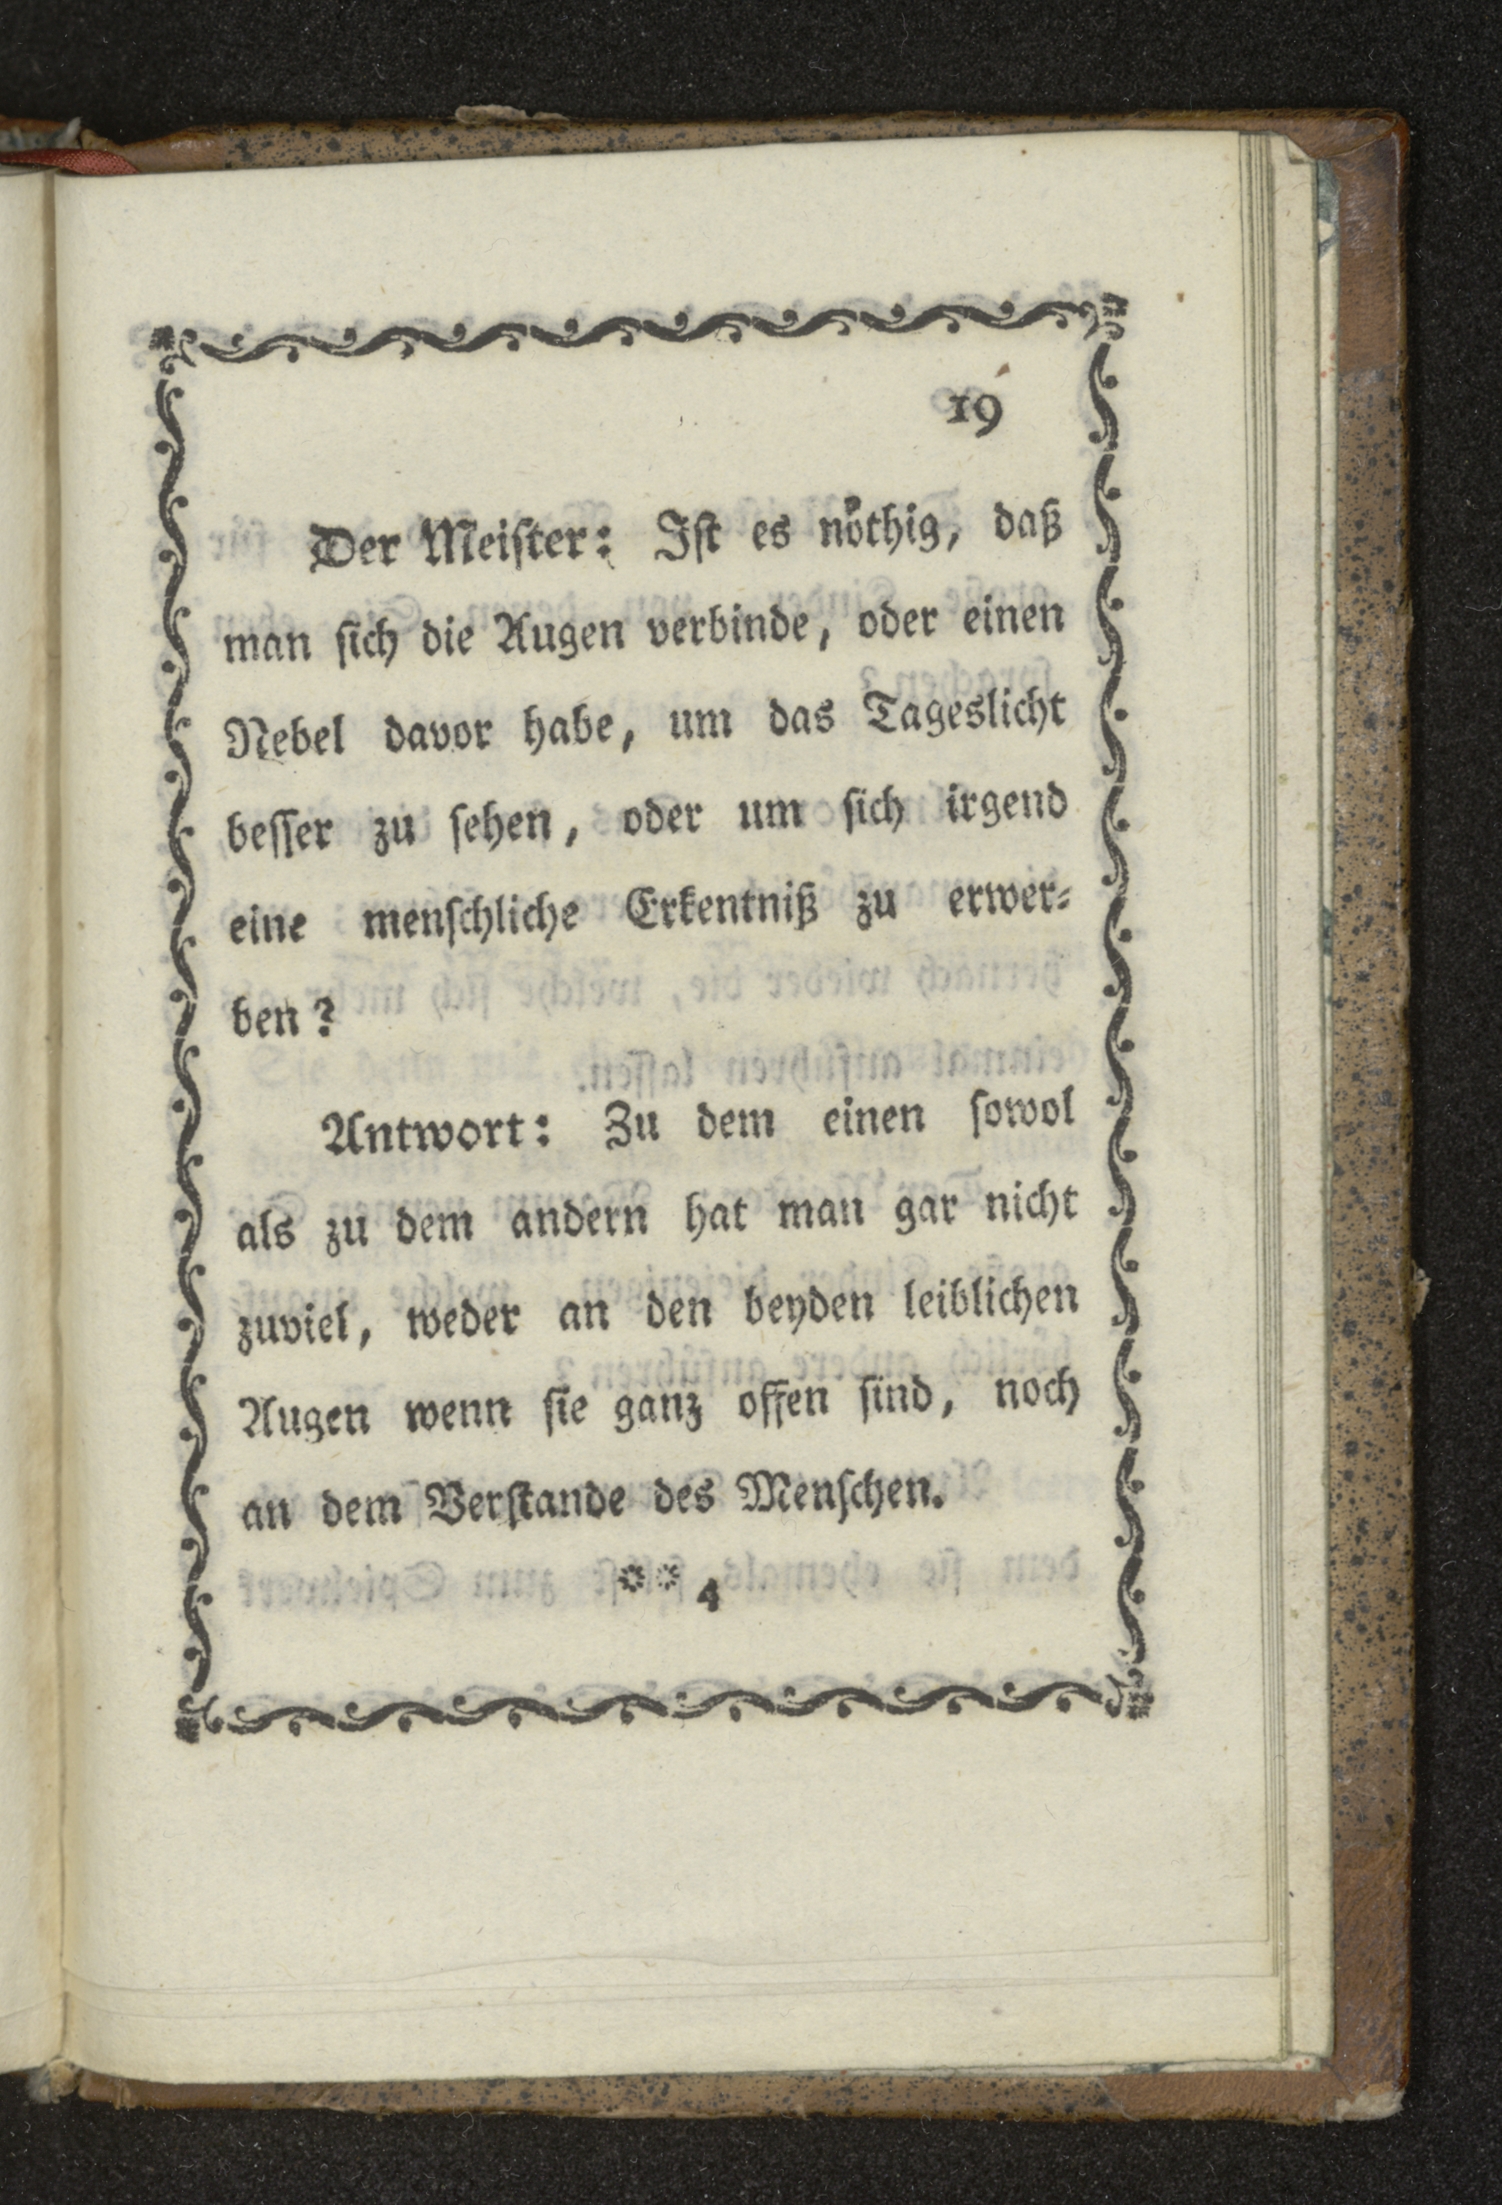 19
Der Meiſter: Iſt es nöthig, daß
man ſich die Augen verbinde, oder einen
Nebel davor habe, um das Tageslicht
beſſer zu ſehen, oder um ſich irgend
eine menſchliche Erkentniß zu erwer⸗
ben?
Antwort: Zu dem einen ſowol
als zu dem andern hat man gar nicht
zuviel, weder an den beyden leiblichen
Augen wenn ſie ganz offen ſind, noch
an dem Verſtande des Menſchen.
** 4